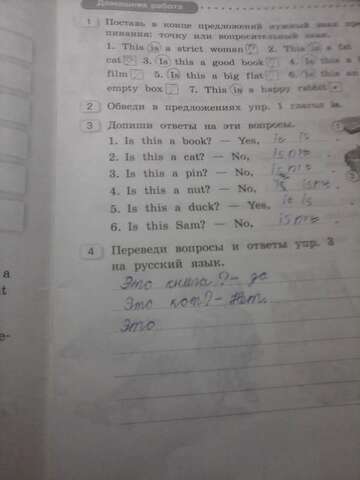 Домашняя работа
1 Поставь в конце предложений нужный знак пре-
пинания: точку или вопросительный знак.
1. This is a strict woman 2. This is a fat
cat 3. Is this a good book 4. Is this a
film 5. Is this a big flat 6. Is this an
empty box 7. This is a happy rabbit
2 Обведи в предложениях упр. 1 глагол is.
3 Допиши ответы на эти вопросы.
1. Is this a book? — Yes, it is
2. Is this a cat? — No,
3. Is this a pin? — No,
4. Is this a nut? — No,
5. Is this a duck? — Yes, it is
6. Is this Sam? — No,
4 Переведи вопросы и ответы упр. 3
на русский язык.
Это книга? – да
Это кот? – Нет.
Это